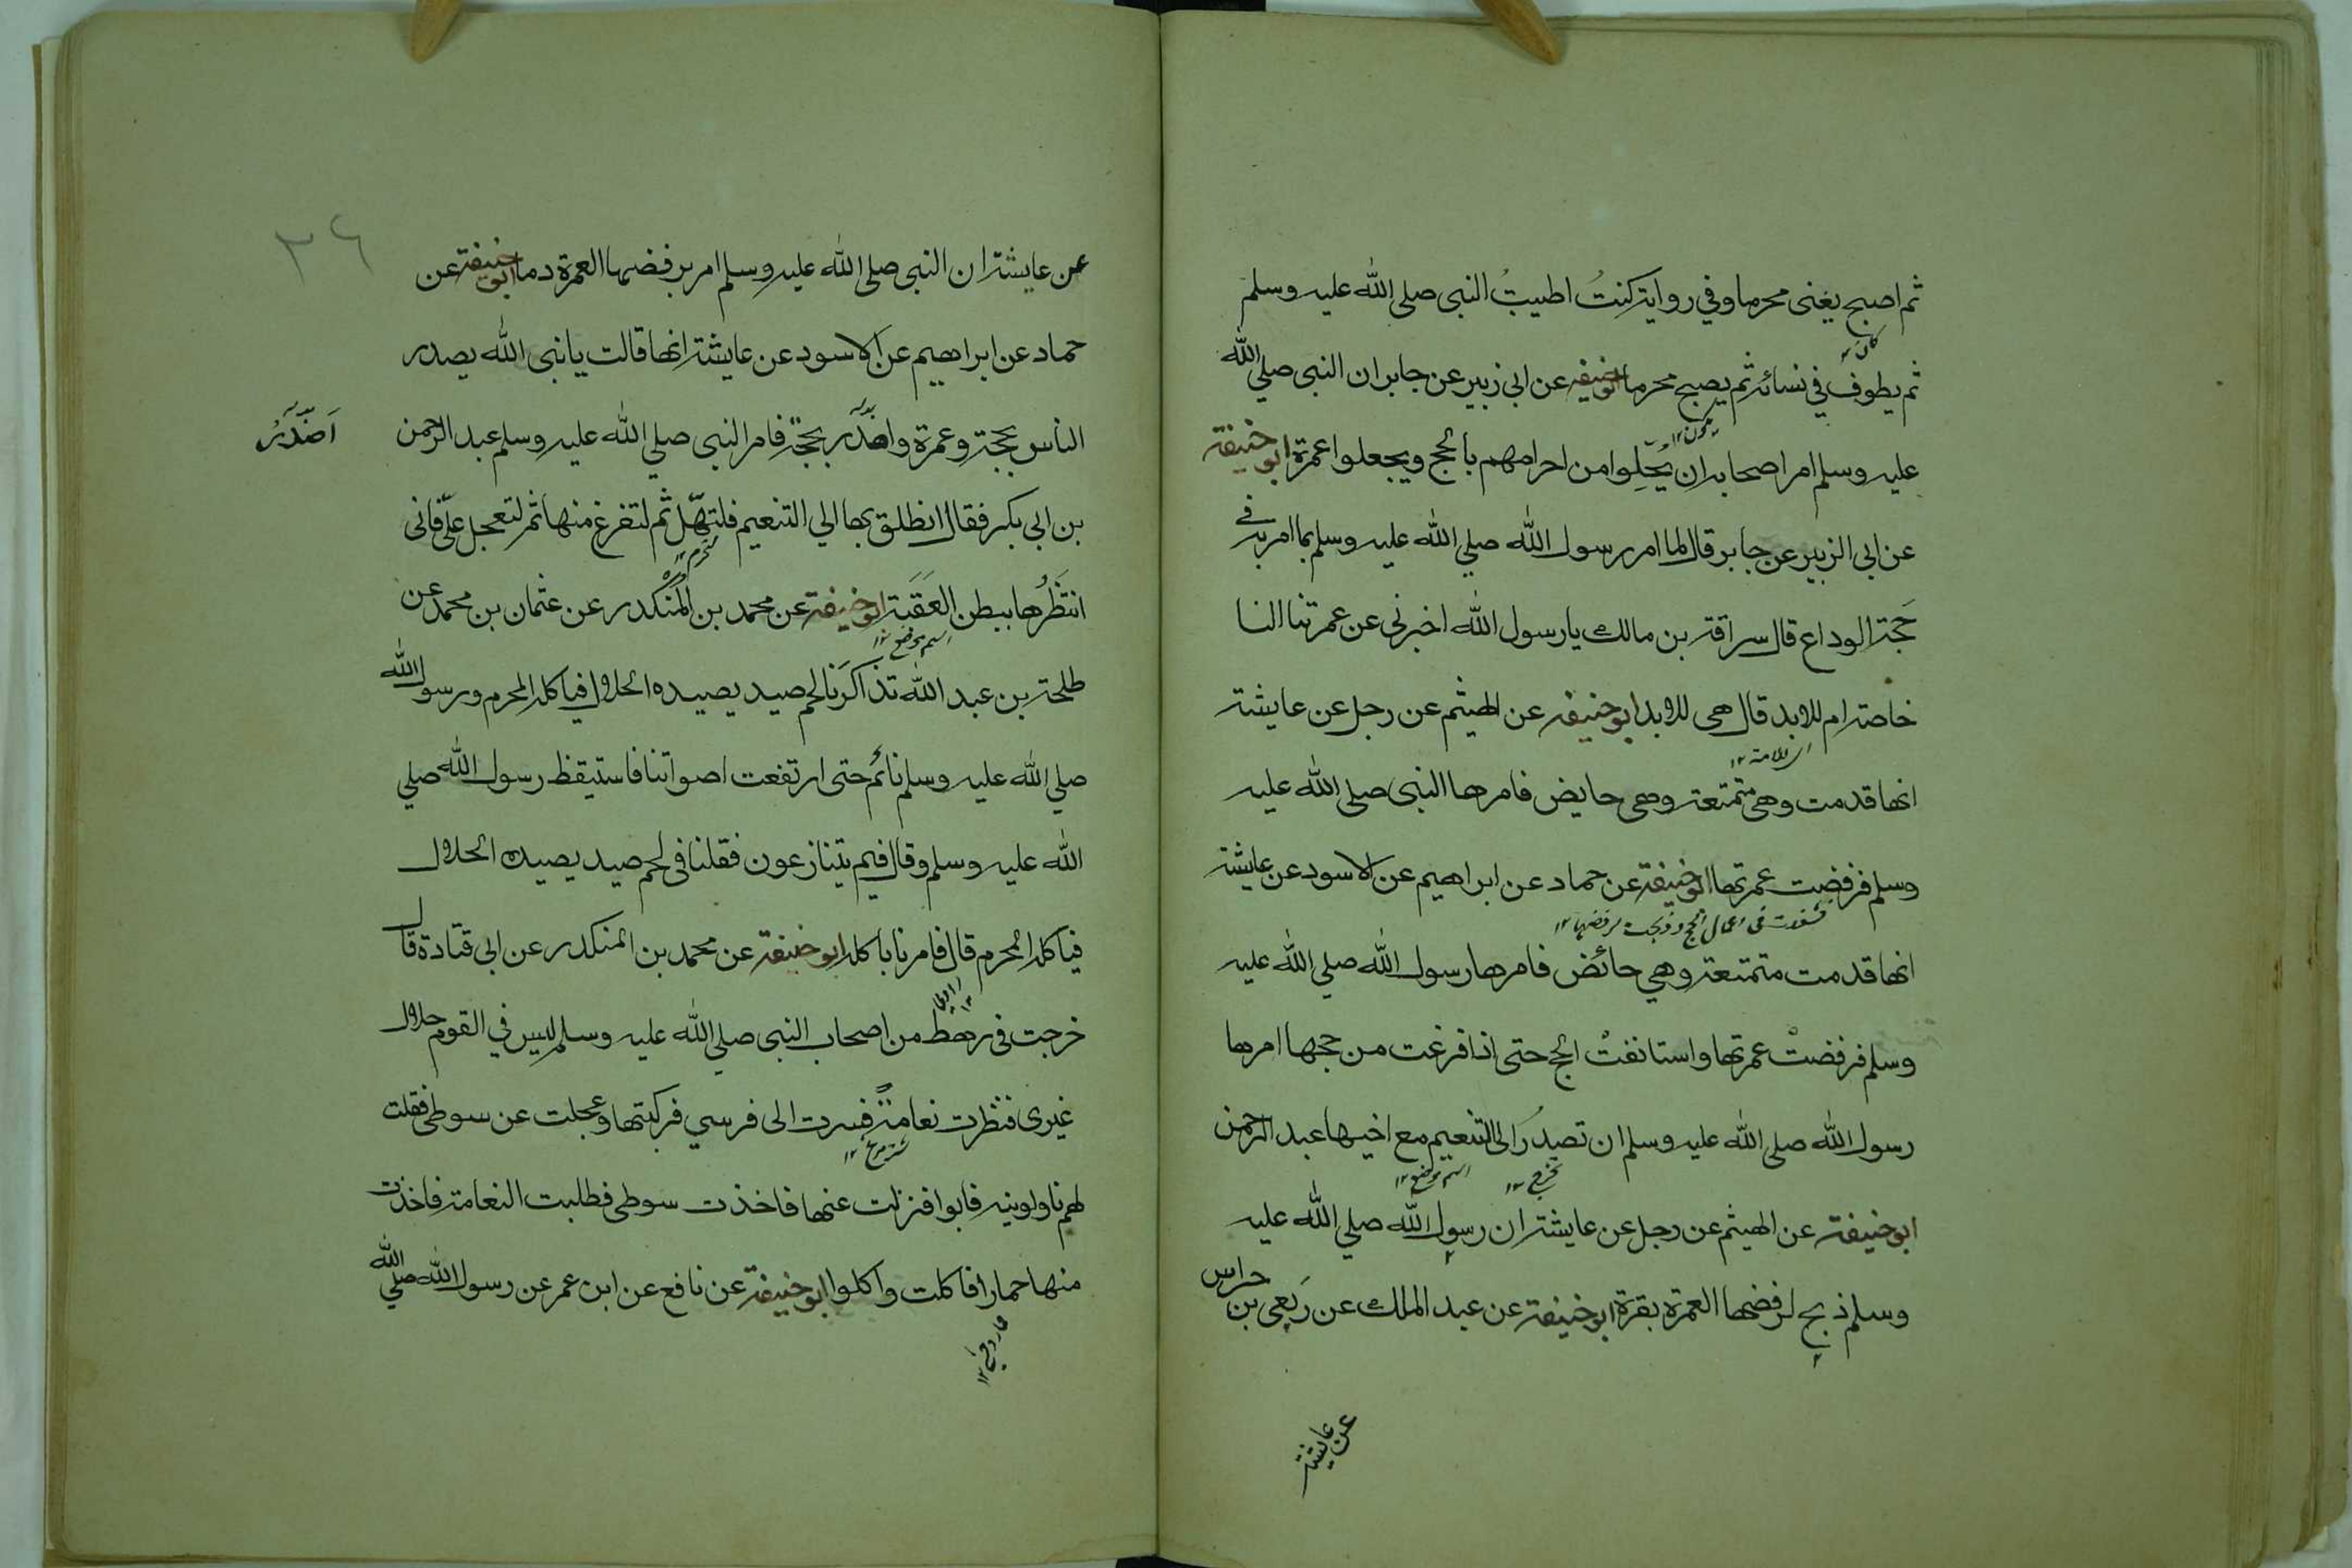 ثم اصبح يعنى محرما وفي رواية كنتُ اطيبُ النبى صلى الله عليه وسلم
ثم يطوف في نسائه ثم يصبح محرما ابوحنيفة عن ابى زبير عن جابر ان النبى صلي الله
عليه وسلم امر اصحابه ان يُحِلوا من احرامهم بالحج ويجعلوا عمرة ابوحنيفة
عن ابى الزبير عن جابر قال لما امر رسول الله صلي الله عليه وسلم بما امر به في
حَجة الوداع قال سراقة بن مالك يا رسول الله اخبرنى عن عمرتنا النا
خاصة ام للابد قال هى للابد ابوحنيفة عن الهيثم عن رجل عن عايشة
انها قدمت وهى متمتعة وهى حايض فامرها النبى صلى الله عليه
وسلم فرفضت عمرتها ابوحنيفة عن حماد عن ابراهيم عن الاسود عن عايشة
انها قدمت متمتعة وهي حائض فامرها رسول الله صلي الله عليه
وسلم فرفضتْ عمرتها واستانفتْ الحج حتى اذا فرغت من حجها امرها
رسول الله صلى الله عليه وسلم ان تصدرَ الى التنعيم مع اخيها عبد الرحمن
اسم موضع ١٢
ابوحنيفة عن الهيثم عن رجل عن عايشة ان رسول الله صلي الله عليه
وسلم ذبح لرفضها العمرة بقرة ابوحنيفة عن عبد الملك عن رَبعى بن حراس
عن عايشة
٣٦
عن عايشة ان النبى صلى الله عليه وسلم امر برفضها العمرة دما ابوحنيفة عن
حماد عن ابراهيم عن الاسود عن عايشة انها قالت يا نبى الله يصدر
الناس بحجة وعمرة واصدر بحجّة فامر النبى صلي الله عليه وسلم عبد الرحمن
اَصْدُرُ
بن ابى بكر فقال انطلق بها الي التنعيم فلتهلّ ثم لتفرغ منها ثم لتعجل علىّ فانى
انتَظَرُها ببطن العَقَبَة ابوحنيفة عن محمد بن المنكدر عن عثمان بن محمد عن
اسم موضع ١٢
طلحة بن عبد الله تذاكَرْنا لحم صيد يصيده الحلال فياكله المحرم ورسول الله
صلي الله عليه وسلم نائم حتى ارتفعت اصواتنا فاستيقظ رسول الله صلي
الله عليه وسلم وقال فيم يتنازعون فقلنا فى لحم صيد يصيده الحلال
فياكله المحرم قال فامرنا باكله ابوحنيفة عن محمد بن المنكدر عن ابى قتادة قال
خرجت فى رهط من اصحاب النبى صلي الله عليه وسلم ليس في القوم حلال
غيرى فنظرت نعامةً فسرت الى فرسي فركبتها وعجلت عن سوطى فقلت
لهم ناولونيه فابوا فنزلت عنها فاخذت سوطى فطلبت النعامة فاخذت
منها حمارا فاكلت واكلوا ابوحنيفة عن نافع عن ابن عمر عن رسول الله صلي الله